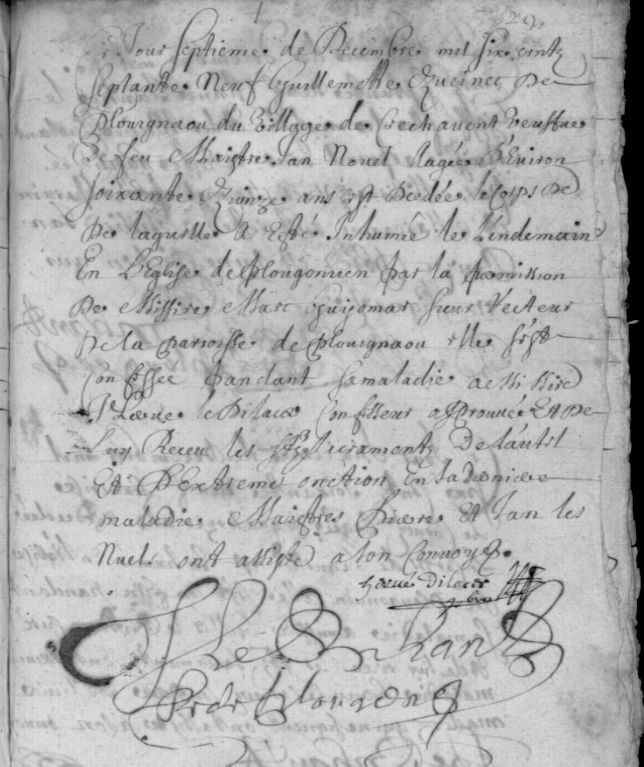 Jour septieme de Decembre mil six centz
septante Neuf Guillemette Queinec de
Plouignaou du village de Crechavent veuffue
de feu Maistre Jan Nouel Aagée D'Environ
soixante Quinze ans est Decedée le corps De
De laquelle A Esté Inhumée le Lendemain
En L'Eglise de Plougonuen par la permission
De Missire Marc Guyomar sieur Recteur
De la Parroisse de Plouignaou elle s'est
confessée pandant sa maladie a Missire
le Bilacee Confesseur approuué Et De
Luy Receu les Sacrements De L'autel
Et D'Extreme onction En sa derniere
maladie Maistres Pierre Et Jan les
Nuels ont assisté a son Convoy